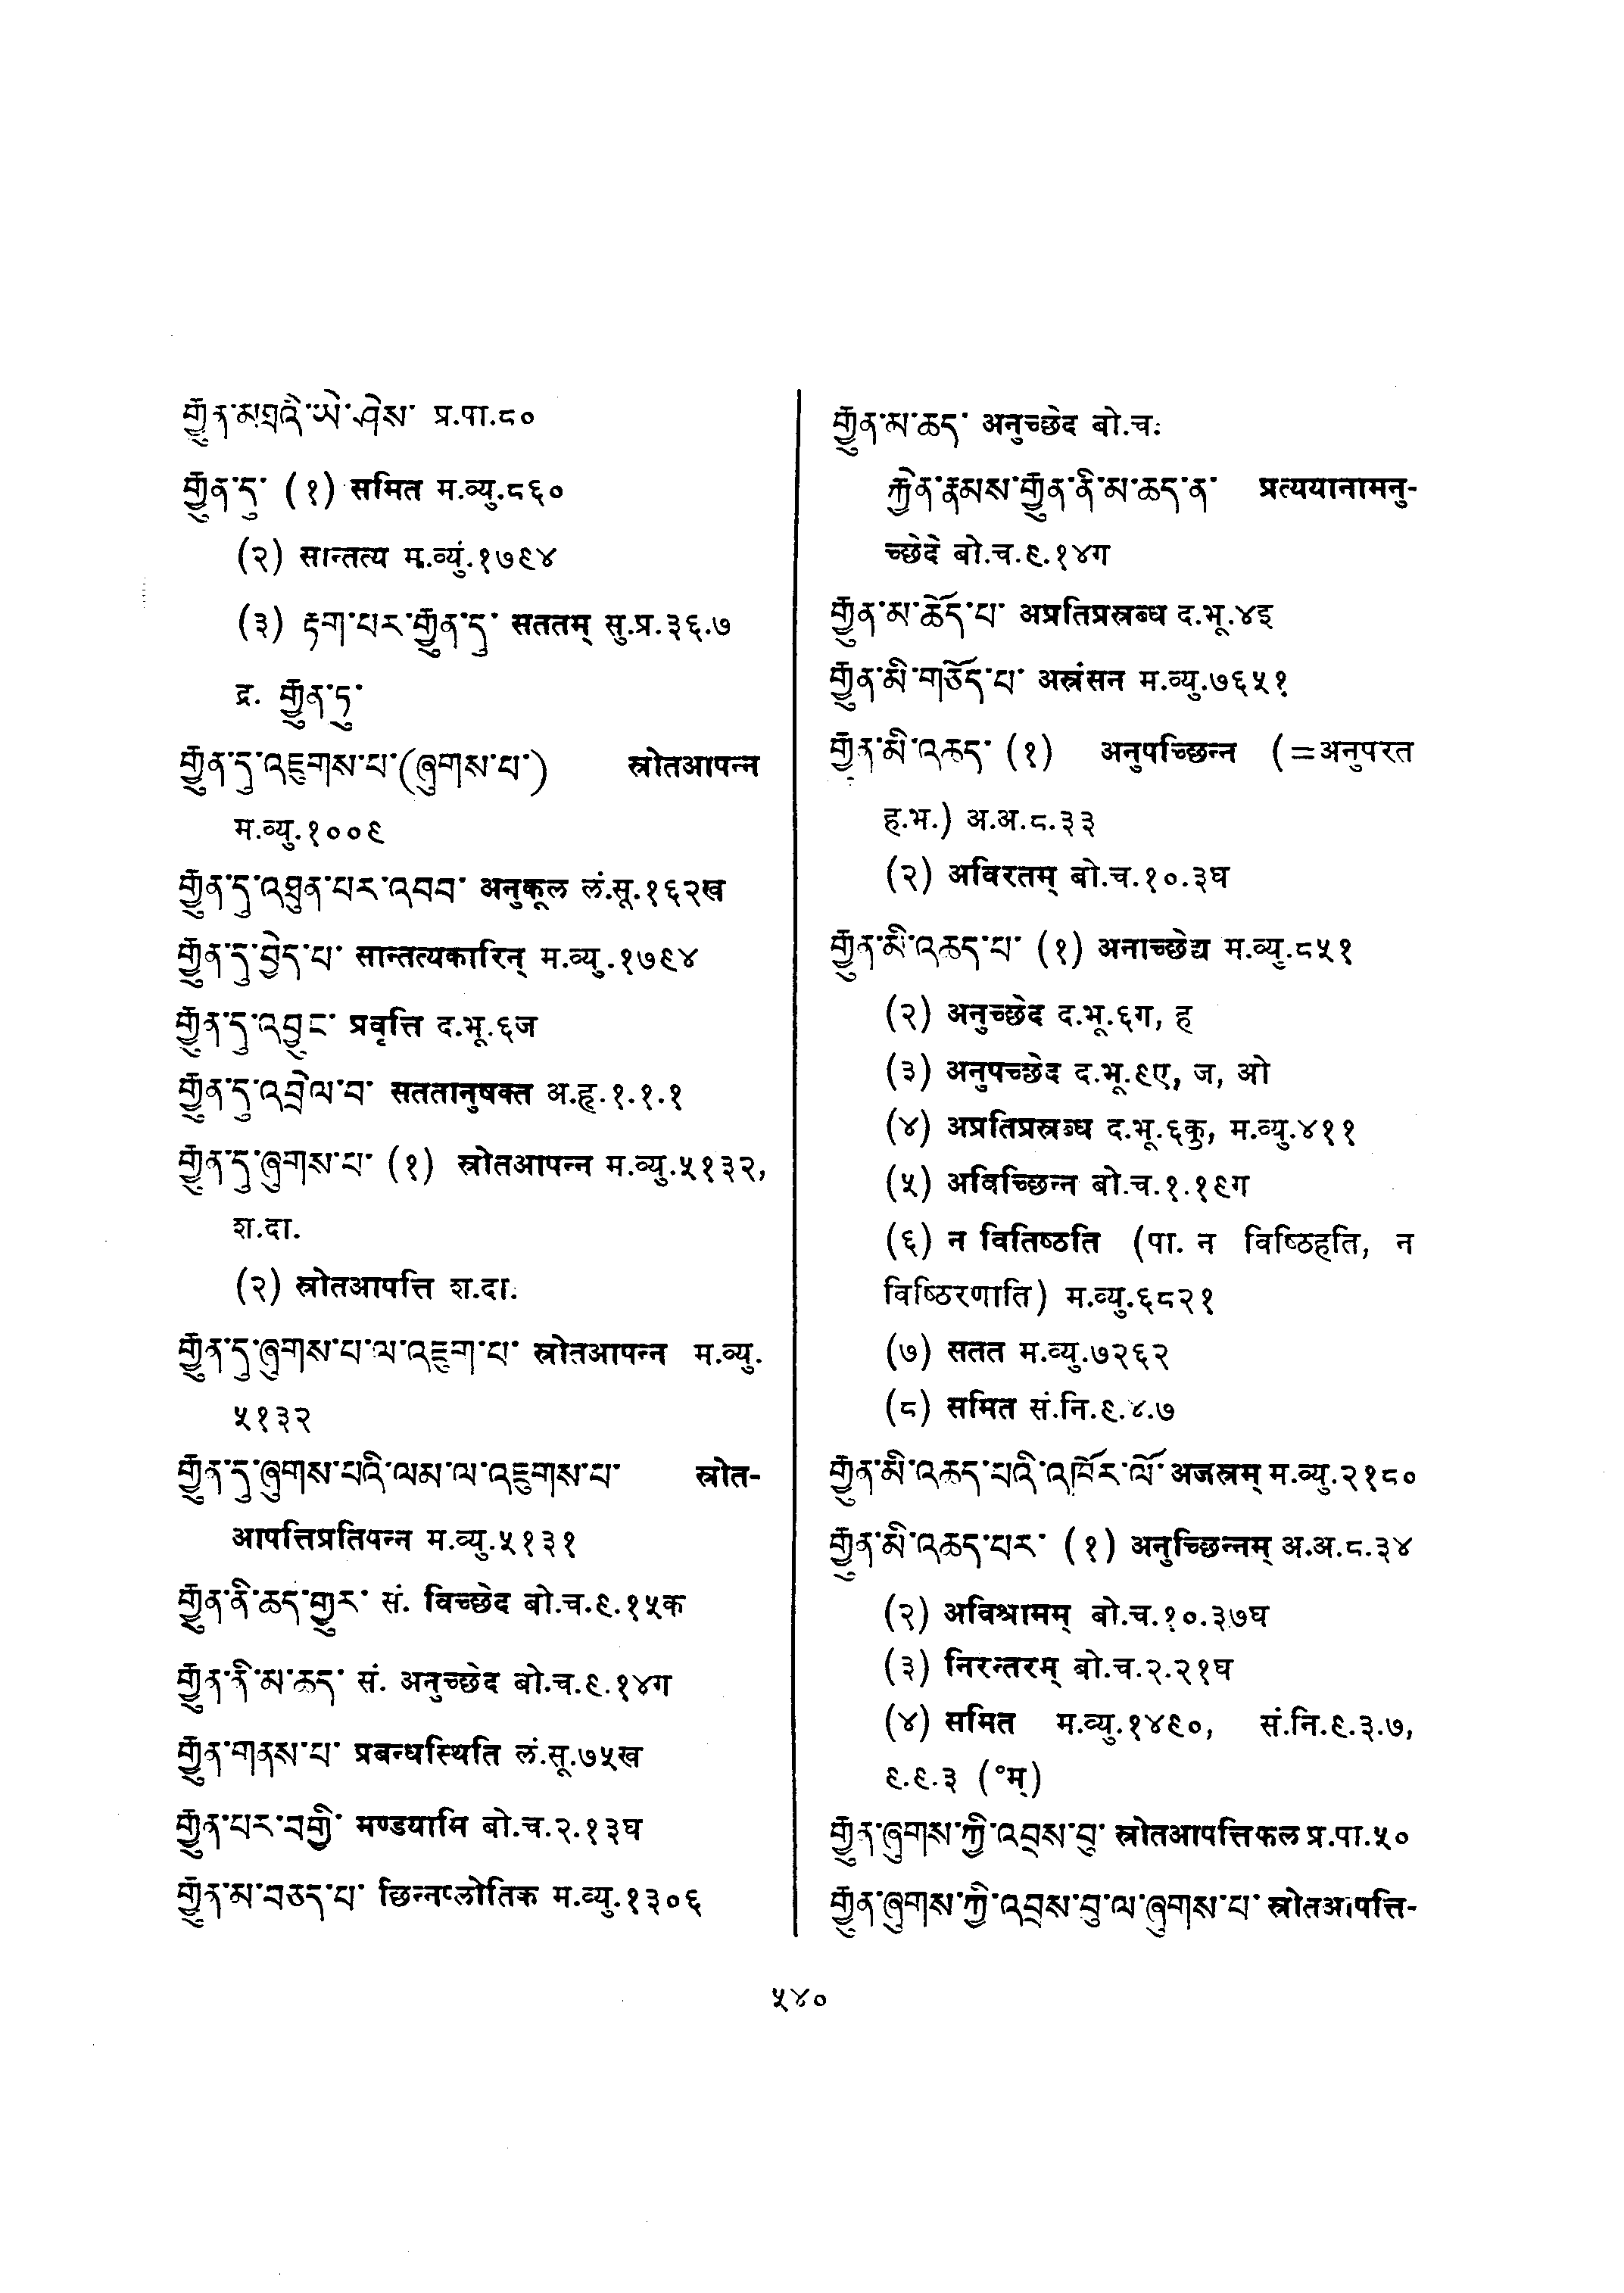 རྒྱུན་མཐའི་ཡེ་ཤེས་ प्र.पा.८०
རྒྱུན་དུ་ (१) समित म.व्यु.८६०
(२) सान्तत्य म.व्यु.१७९४
(३) རྟག་པར་རྒྱུན་དུ་ सततम् सु.प्र.३६.७
द्र. རྒྱུན་ཏུ་
རྒྱུན་དུ་འཇུགས་པ་(ཞུགས་པ་) स्रोतआपन्न
म.व्यु.१००९
རྒྱུན་དུ་འཐུན་པར་འབབ་ अनुकूल लं.सू.१६२ख
རྒྱུན་དུ་བྱེད་པ་ सान्तत्यकारिन् म.व्यु.१७९४
རྒྱུན་དུ་འབྱུང་ प्रवृत्ति द.भू.६ज
རྒྱུན་དུ་འབྲེལ་བ་ सततानुषक्त अ.हृ.१.१.१
རྒྱུན་དུ་ཞུགས་པ་ (१) स्रोतआपन्न म.व्यु.५१३२,
श.दा.
(२) स्रोतआपत्ति श.दा.
རྒྱུན་དུ་ཞུགས་པ་ལ་འཇུག་པ་ स्रोतआपन्न म.व्यु.
५१३२
རྒྱུན་དུ་ཞུགས་པའི་ལམ་ལ་འཇུགས་པ་ स्रोत-
आपत्तिप्रतिपन्न म.व्यु.५१३१
རྒྱུན་ནི་ཆད་གྱུར་ सं. विच्छेद बो.च.९.१५क
རྒྱུན་ནི་མ་ཆད་ सं. अनुच्छेद बो.च.९.१४ग
རྒྱུན་གནས་པ་ प्रबन्धस्थिति लं.सू.७५ख
རྒྱུན་པར་བགྱི་ मण्डयामि बो.च.२.१३घ
རྒྱུན་མ་བཅད་པ་ छिन्नप्लोतिक म.व्यु.१३०६
རྒྱུན་མ་ཆད་ अनुच्छेद बो.च.
རྐྱེན་རྣམས་རྒྱུན་ནི་མ་ཆད་ན་ प्रत्ययानामनु-
च्छेदे बो.च.९.१४ग
རྒྱུན་མ་ཆོད་པ་ अप्रतिप्रस्रब्ध द.भू.४इ
རྒྱུན་མི་གཅོད་པ་ अस्रंसन म.व्यु.७६५१
རྒྱུན་མི་འཆད་ (१) अनुपच्छिन्न (=अनुपरत
ह.भ.) अ.अ.८.३३
(२) अविरतम् बो.च.१०.३घ
རྒྱུན་མི་འཆད་པ་ (१) अनाच्छेद्य म.व्यु.८५१
(२) अनुच्छेद द.भू.६ग, ह
(३) अनुपच्छेद द.भू.९ए, ज, ओ
(४) अप्रतिप्रस्रब्ध द.भू.६कु, म.व्यु.४११
(५) अविच्छिन्न बो.च.१.१९ग
(६) न वितिष्ठति (पा. न विष्ठिहति, न
विष्ठिरणाति) म.व्यु.६८२१
(७) सतत म.व्यु.७२६२
(८) समित सं.नि.९.४.७
རྒྱུན་མི་འཆད་པའི་འཁོར་ལོ་ अजस्रम् म.व्यु.२१८०
རྒྱུན་མི་འཆད་པར་ (१) अनुच्छिन्नम् अ.अ.८.३४
(२) अविश्रामम् बो.च.१०.३७घ
(३) निरन्तरम् बो.च.२.२१घ
(४) समित म.व्यु.१४९०, सं.नि.९.३.७,
९.९.३ (°म्)
རྒྱུན་ཞུགས་ཀྱི་འབྲས་བུ་ स्रोतआपत्तिफल प्र.पा.५०
རྒྱུན་ཞུགས་ཀྱི་འབྲས་བུ་ལ་ཞུགས་པ་ स्रोतआपत्ति-
५४०